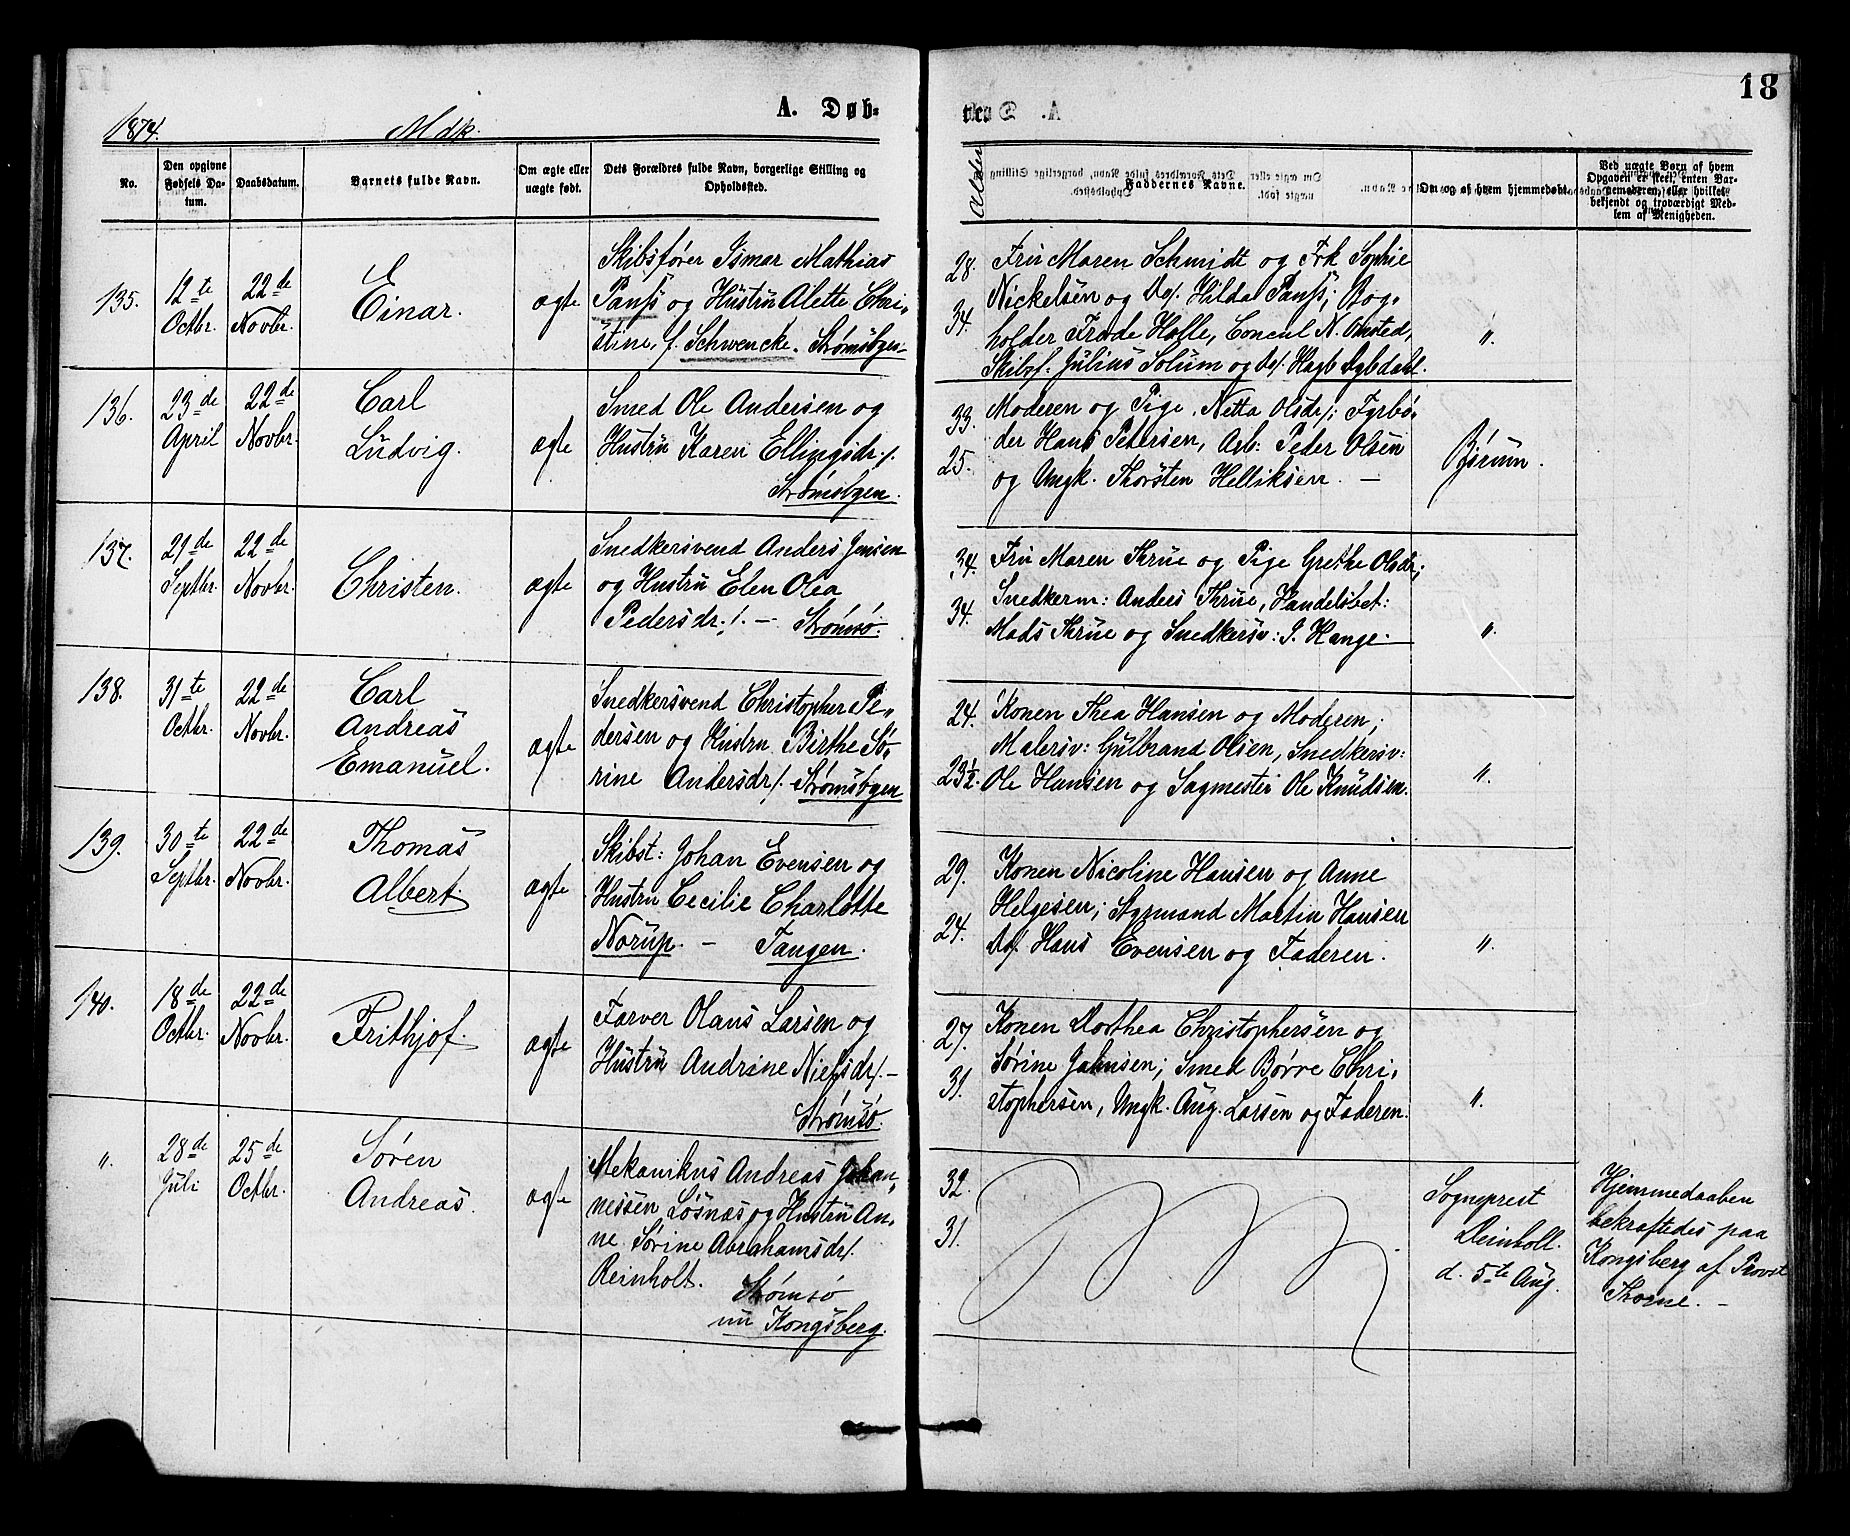 18
1874. Mdk. A. Døb- te.
No.
Den opgivne Fødsels Datum.
Daabsdatum.
Barnets fulde Navn.
Om ægte eller uægte født.
Dets Forældres fulde Navn, borgerlige Stilling og Opholdssted.
Alder
Faddernes Navne.
Om og af hvem hjemmedøbt.
Ved uægte Børn af hvem Opgaven er skeet, enten Barnemoderen, eller hvilket bekjendt og troværdigt Medlem af Menigheden.
135.
12te Octbr.
22de Novbr.
Einar.
ægte
Skibsfører Ismar Mathias
Panss og Hustru Alette Chri-
stine, f. Schwencke. Strømsbgen.
28.
34.
Fru Maren Schmidt og Frk Sophie
Nickelsen og Do/. Hilda Panss; Bog-
holder Frode Holle, Consul N. Omsted,
Skibsf. Julius Solum og Do/. Hagb Aybdahl.
"
136.
23de April
22de Novbr.
Carl
Ludvig.
ægte
Smed Ole Andersen og
Hustru Karen Ellingsdr./.
Strømsbgen.
33.
25.
Moderen og Pige Netta Olsdr/; Fyrbø-
der Hans Petersen, Arb: Peder Olsen
og Ungk. Thorsten Helliksen. —
137.
21de Septbr.
22de Novbr.
Christen.
ægte
Snedkersvend Anders Jensen
og Hustru Elen Olea
Pedersdr./. — Strømsø.
34.
34.
Fru Maren Thrue og Pige Grethe Olsdr;
Snedkerm: Anders Thrue, Handelsbet:
Mads Thrue og Snedkersv: P. Hange.
"
138.
31te Octbr.
22de Novbr.
Carl
Andreas
Emanuel.
ægte
Snedkersvend Christopher Pe-
dersen og Hustru Birthe Sø-
rine Andersdr/. Strømsbgen
24.
23½.
Konen Thea Hansen og Moderen;
Malersv: Gulbrand Olsen, Snedkersv:
Ole Hansen og Sagmester Ole Knudsen.
"
139.
30te Septbr.
22de Novbr.
Thomas
Albert.
ægte
Skibst: Johan Evensen og
Hustru Cecilie Charlotte
Norup. — Tangen.
29.
24.
Konen Nicoline Hansen og Anne
Helgesen; Styrmand Martin Hansen
Do/. Hans Evensen og Faderen.
"
140.
18de Octbr.
22de Novbr.
Frithjof.
ægte
Farver Olaus Larsen og
Hustru Andrine Nielsdr/. —
Strømsø.
27.
31.
Konen Dorthea Christophersen og
Sørine Johnsen; Smed Børre Chri-
stophersen, Ungk. Aug. Larsen og Faderen.
"
"
28de Juli
25de Octbr.
Søren
Andreas.
ægte
Mekanikus Andreas Johan-
nessen Løsnæs og Hustru An-
ne Sørine Abrahamsdr/.
Reinholt.
Strømsø
nu Kongsberg.
32.
31.
Sogneprest
d. 5te Aug.
Hjemmedaaben
bekræftedes paa
Kongsberg af Provst
Thorne. —